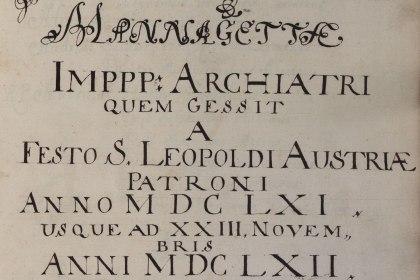 MANNAGETTÆ
IMPPP: ARCHIATRI
QUEM GESSIT
A
FESTO S. LEOPOLDI AUSTRIÆ
PATRONI
ANNO M DC LXI.
USQUE AD XXIII. NOVEM„
BRIS
ANNI M DC LXII.